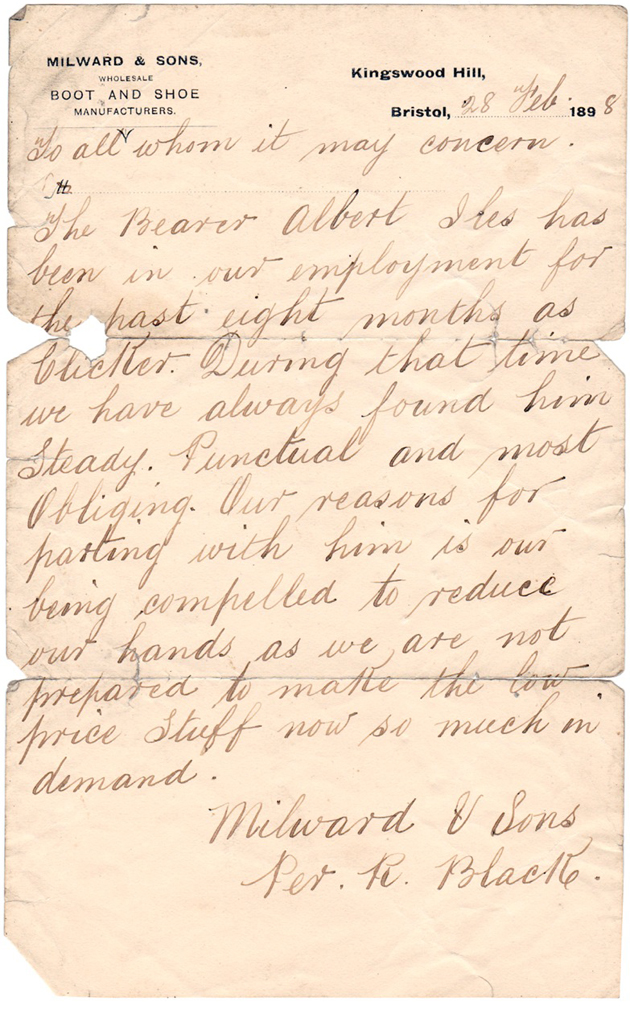 MILWARD & SONS,
WHOLESALE
BOOT AND SHOE
MANUFACTURERS.
Kingswood Hill,
Bristol, 28 Feb. 1898
To all whom it may concern.
The Bearer Albert Iles has
been in our employment for
the past eight months as
Clicker. During that time
we have always found him
Steady. Punctual and most
Obliging. Our reasons for
parting with him is our
being compelled to reduce
our hands as we are not
prepared to make the low
price Stuff now so much in
demand.
Milward & Sons
Per. R. Black.